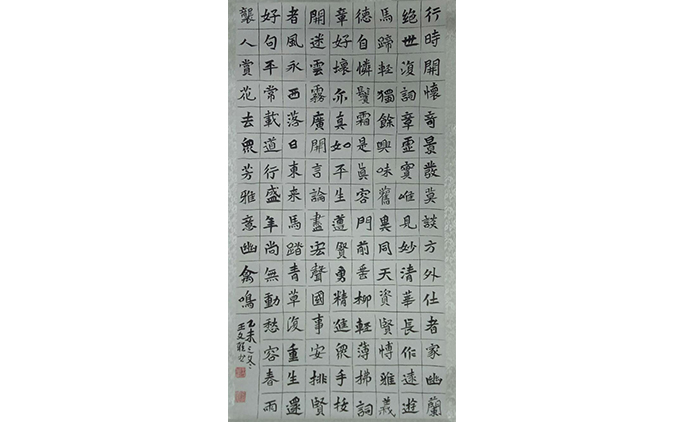 行時開懷奇景發莫談方外仕者家幽蘭
絕世復詞章靈實唯見妙清華長作遠遊
馬蹄輕獨餘興味舊異同天資賢博雅義
德自憐鬢霜是真容門前垂柳輕薄拂詞
章好壞亦真如平生遭賢勇精進眾手按
開迷雲霧廣開言論盡宏聲國事安排賢
者風永西落日東来馬踏青草復重生還
好句平常載道行盛年尚無動愁容春雨
襲人賞花去眾芳雅意幽禽鳴
乙未之冬
王文